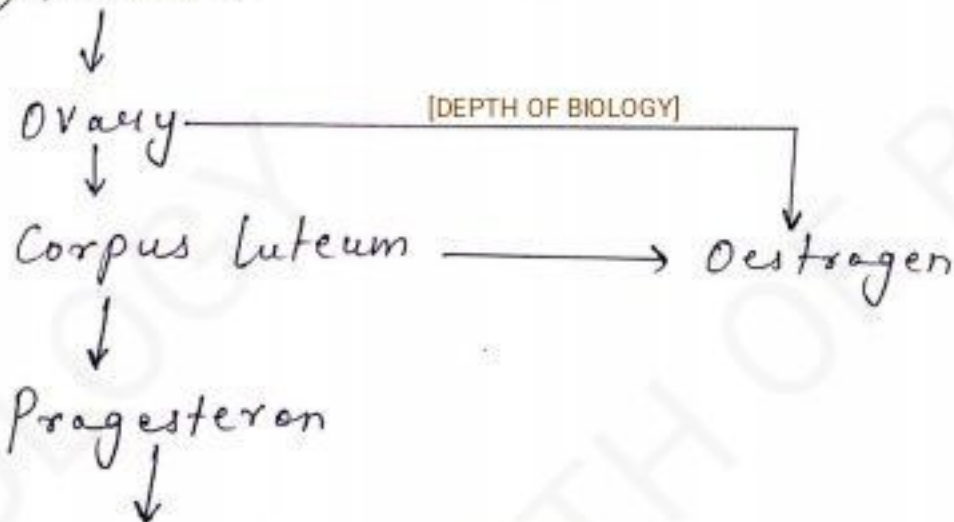 Ovary
[DEPTH OF BIOLOGY]
Corpus luteum
Oestragen
Progesteron